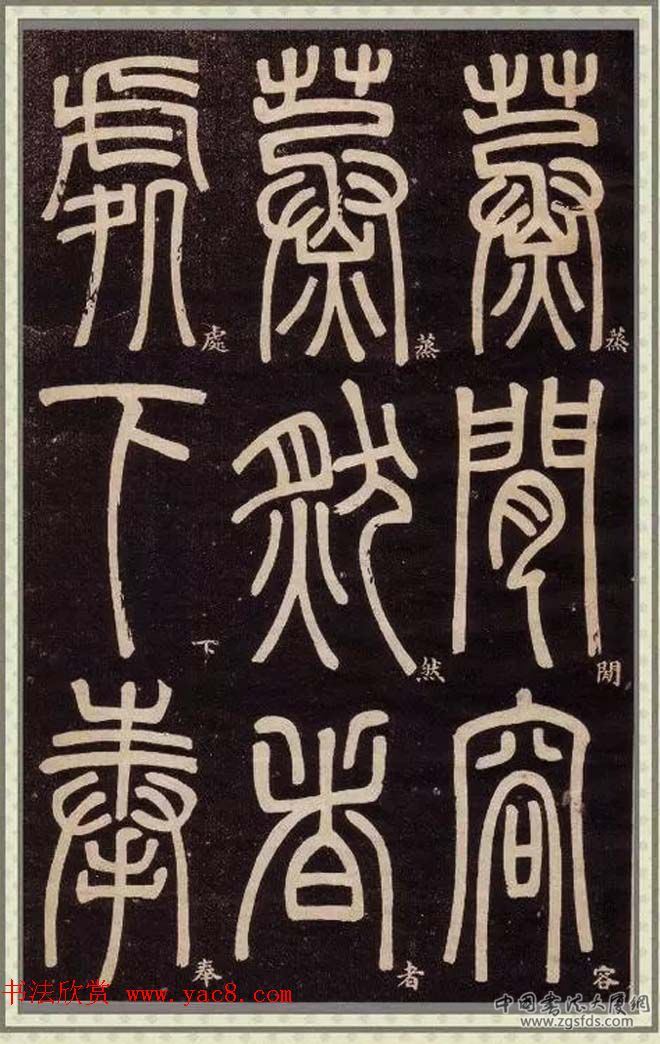 蒸閒容
蒸閒容
蒸然者
蒸然者
處下奉
處下奉
书法欣赏 www.yac8.com
中国书法大厦网
www.zgsfds.com